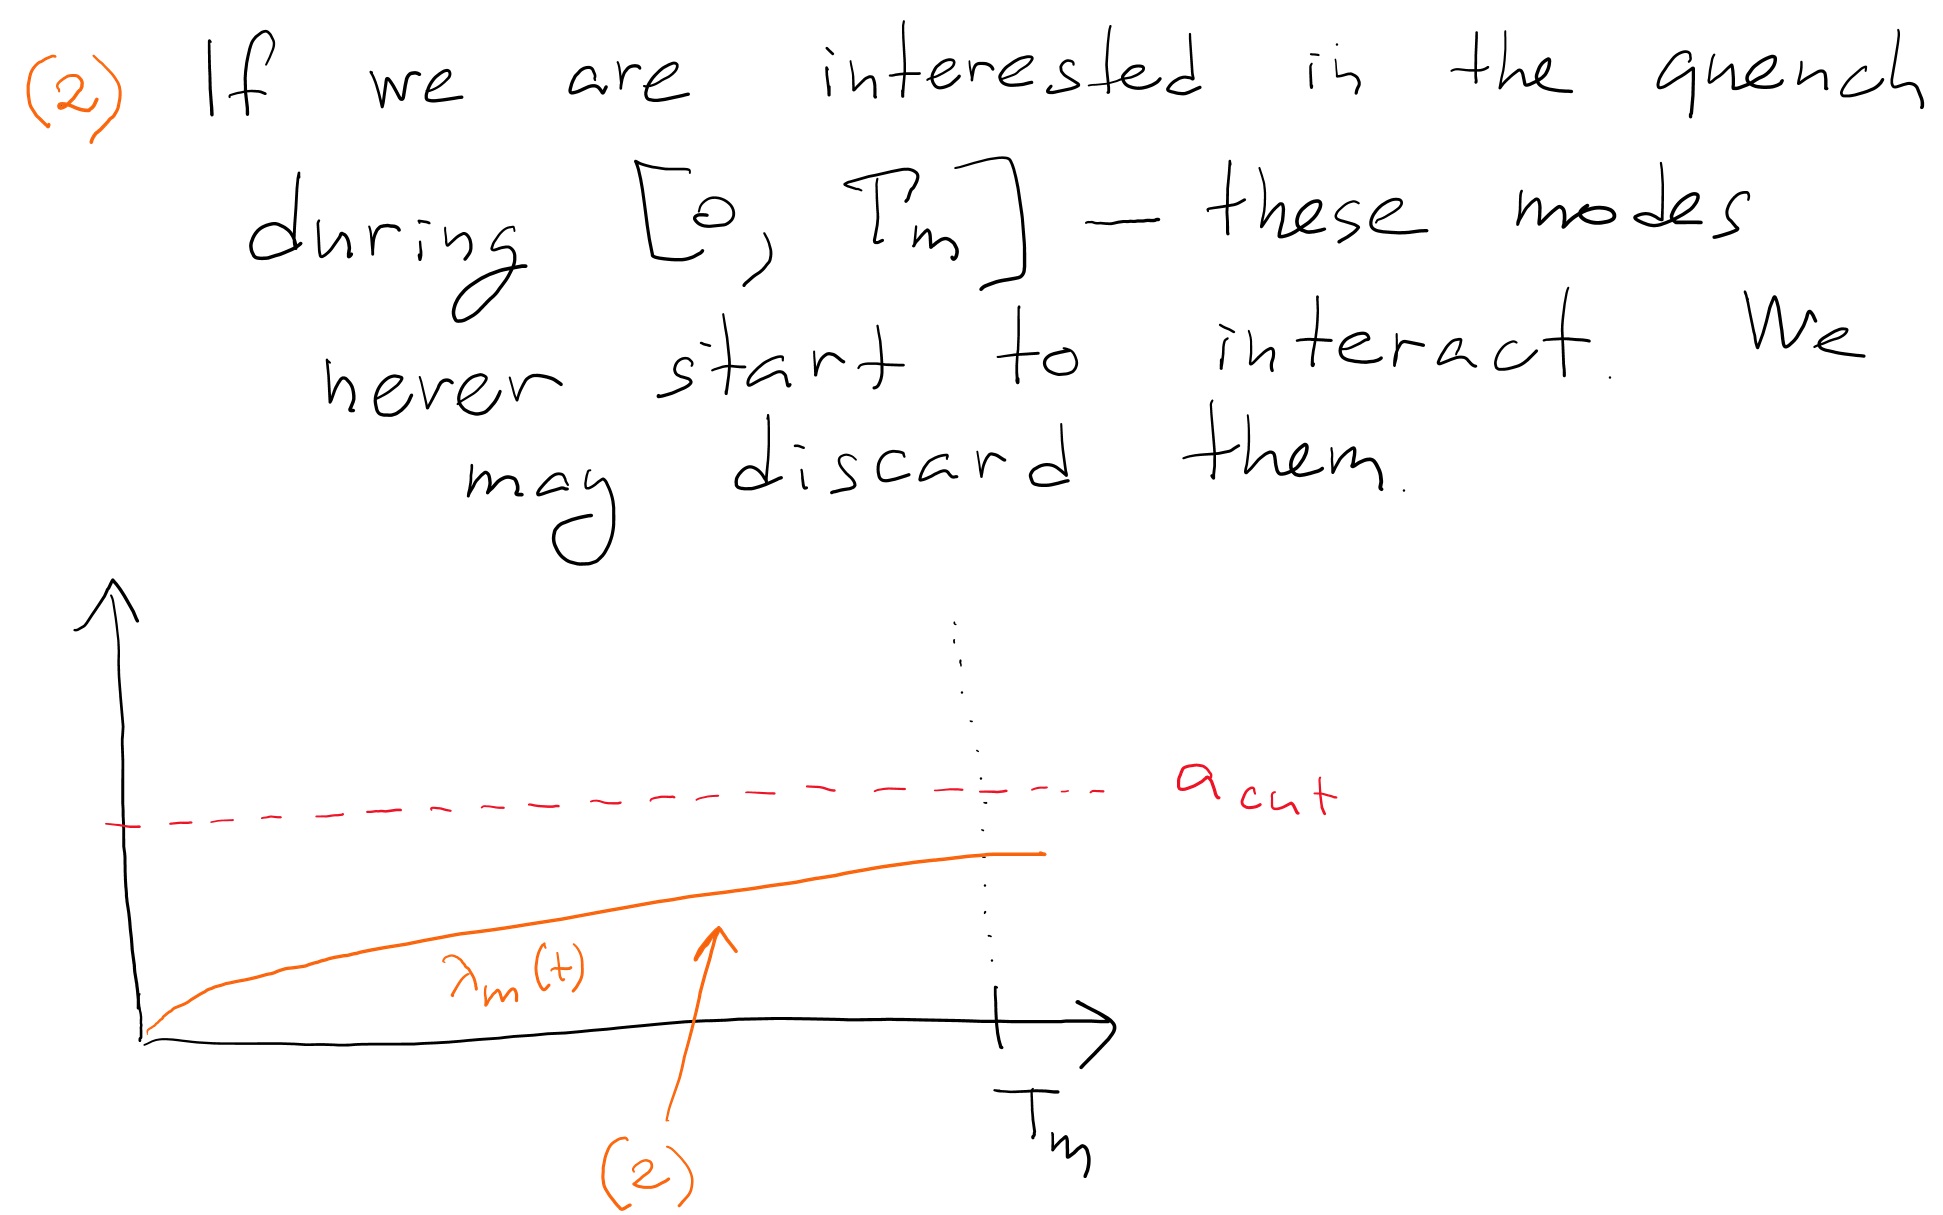 (2) If we are interested in the quench
during [0, Tm] — these modes
never start to interact. We
may discard them.
a cut
λm(t)
Tm
(2)